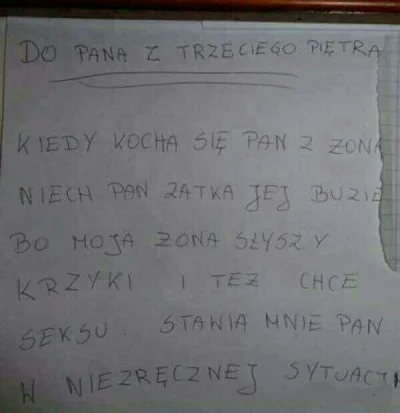 DO PANA Z TRZECIEGO PIĘTRA
KIEDY KOCHA SIĘ PAN Z ŻONĄ
NIECH PAN ZATKA JEJ BUZIE
BO MOJA ŻONA SŁYSZY
KRZYKI I TEŻ CHCE
SEKSU. STAWIA MNIE PAN
W NIEZRĘCZNEJ